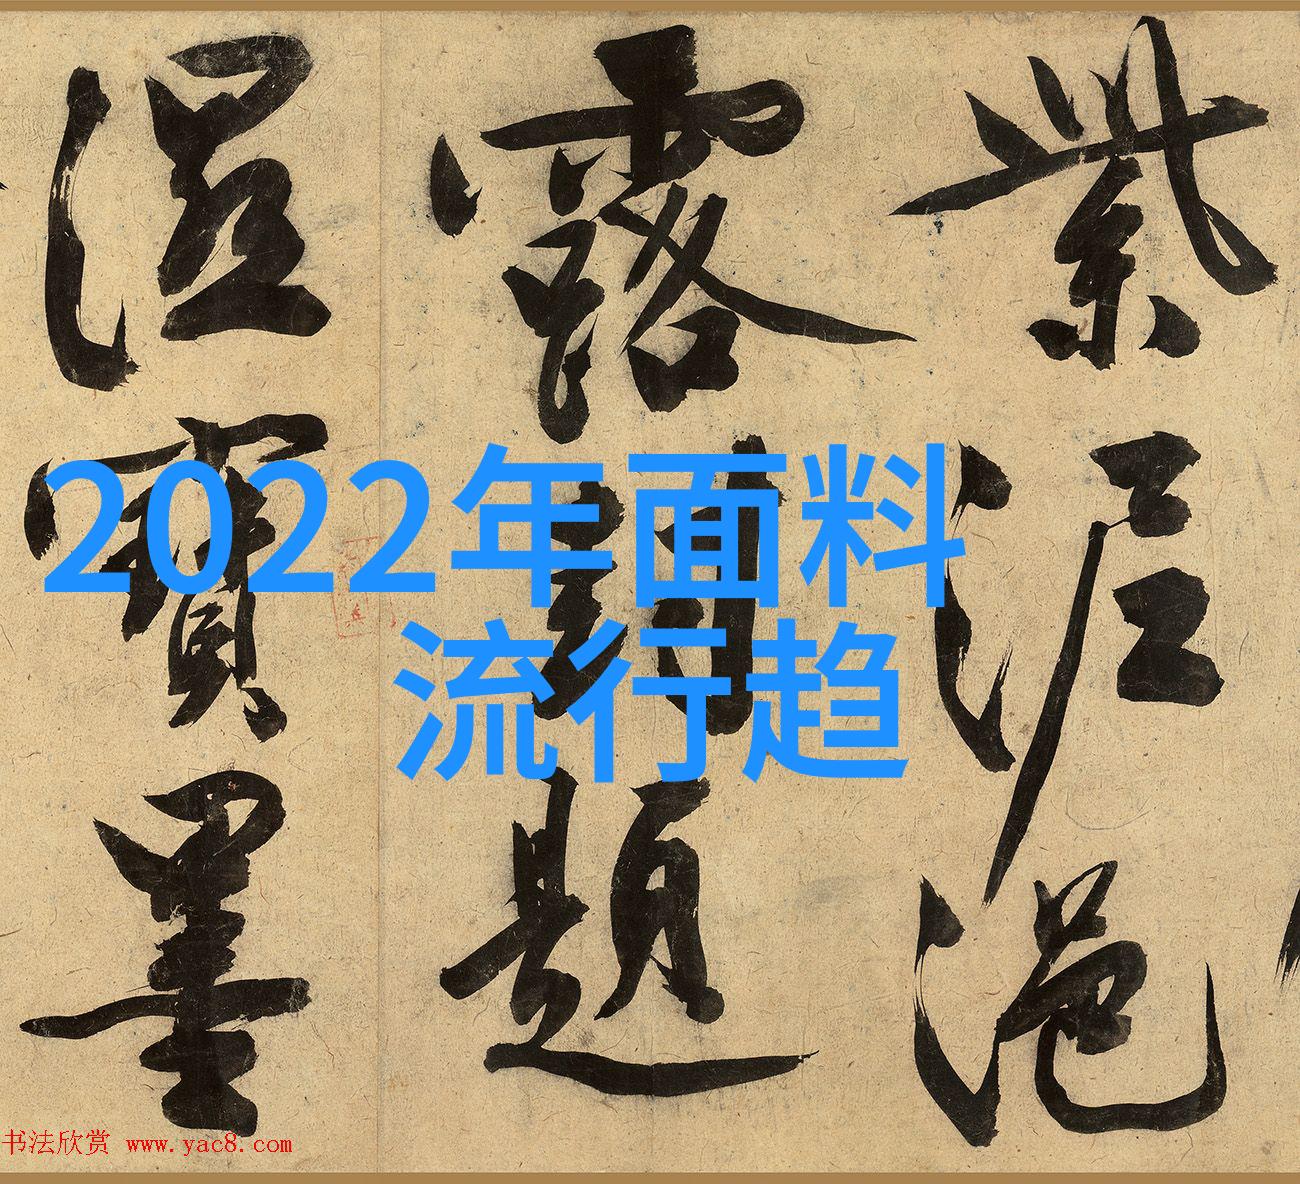 紫泥浥
露封題
濕寶墨
2022年面料
流行趋
书法欣赏 www.yac8.com